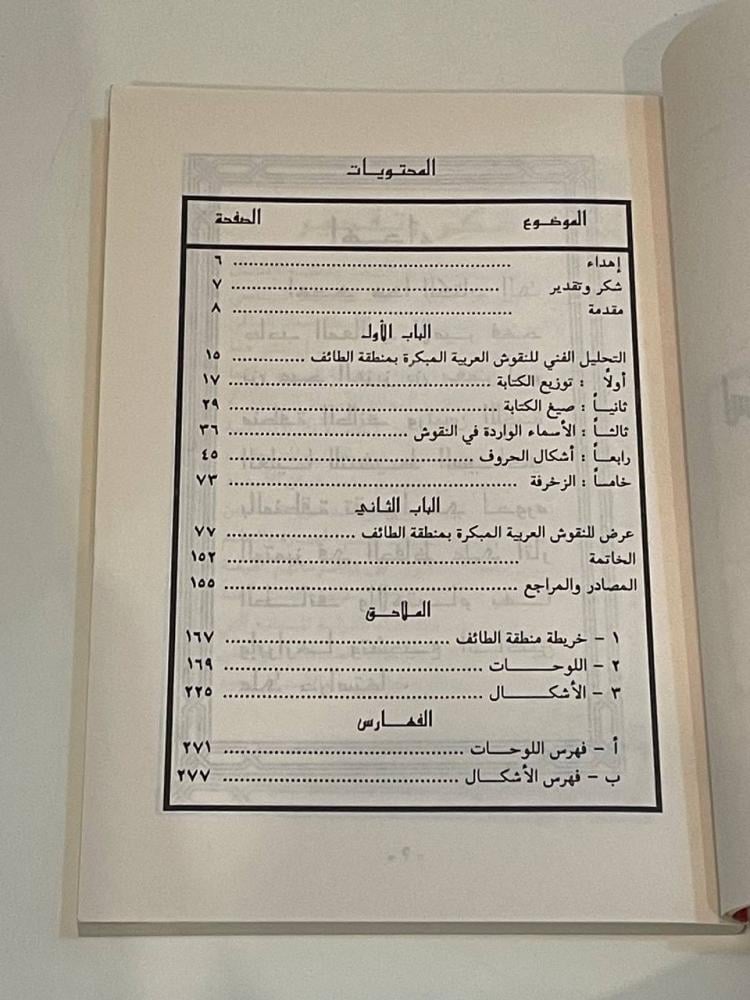 المحتويات
الموضوع الصفحة
إهداء ................ ٦
شكر وتقدير ................ ٧
مقدمة ................ ٨
الباب الأول
التحليل الفني للنقوش العربية المبكرة بمنطقة الطائف ................ ١٥
أولاً : توزيع الكتابة ................ ١٧
ثانياً : صيغ الكتابة ................ ٢٩
ثالثاً : الأسماء الواردة في النقوش ................ ٣٦
رابعاً : أشكال الحروف ................ ٤٥
خامساً : الزخرفة ................ ٧٣
الباب الثاني
عرض للنقوش العربية المبكرة بمنطقة الطائف ................ ٧٧
الخاتمة ................ ١٥٢
المصادر والمراجع ................ ١٥٥
الملاحق
١ – خريطة منطقة الطائف ................ ١٦٧
٢ – اللوحات ................ ١٦٩
٣ – الأشكال ................ ٢٢٥
الفهارس
أ – فهرس اللوحات ................ ٢٧١
ب – فهرس الأشكال ................ ٢٧٧